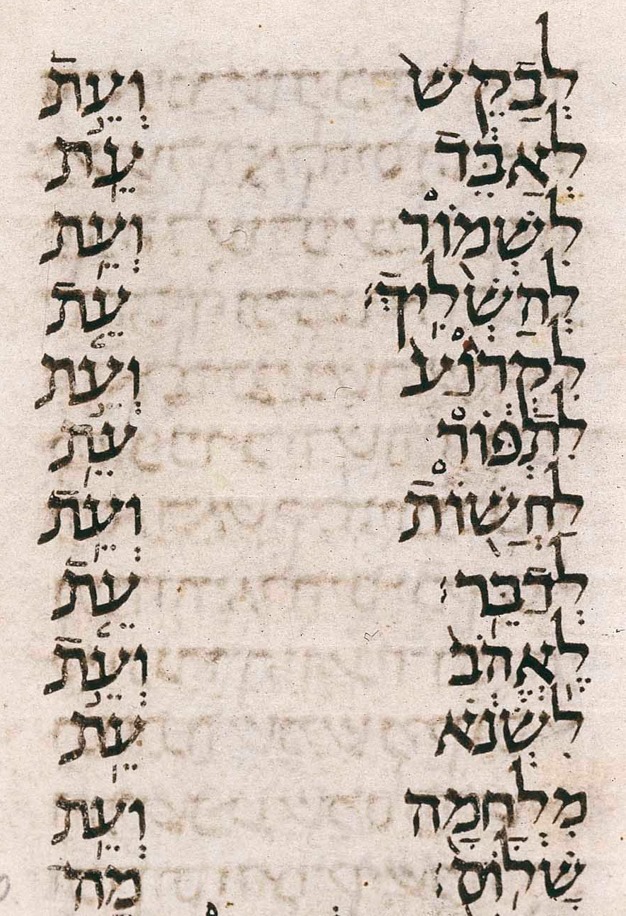 לְבַקֵּשׁ וְעֵת
לְאַבֵּד עֵת
לִשְׁמוֹר וְעֵת
לְהַשְׁלִיךְ׃ עֵת
לִקְרוֹעַ וְעֵת
לִתְפּוֹר עֵת
לַחֲשׁוֹת וְעֵת
לְדַבֵּר׃ עֵת
לֶאֱהֹב וְעֵת
לִשְׂנֹא עֵת
מִלְחָמָה וְעֵת
שָׁלוֹם׃ מַה